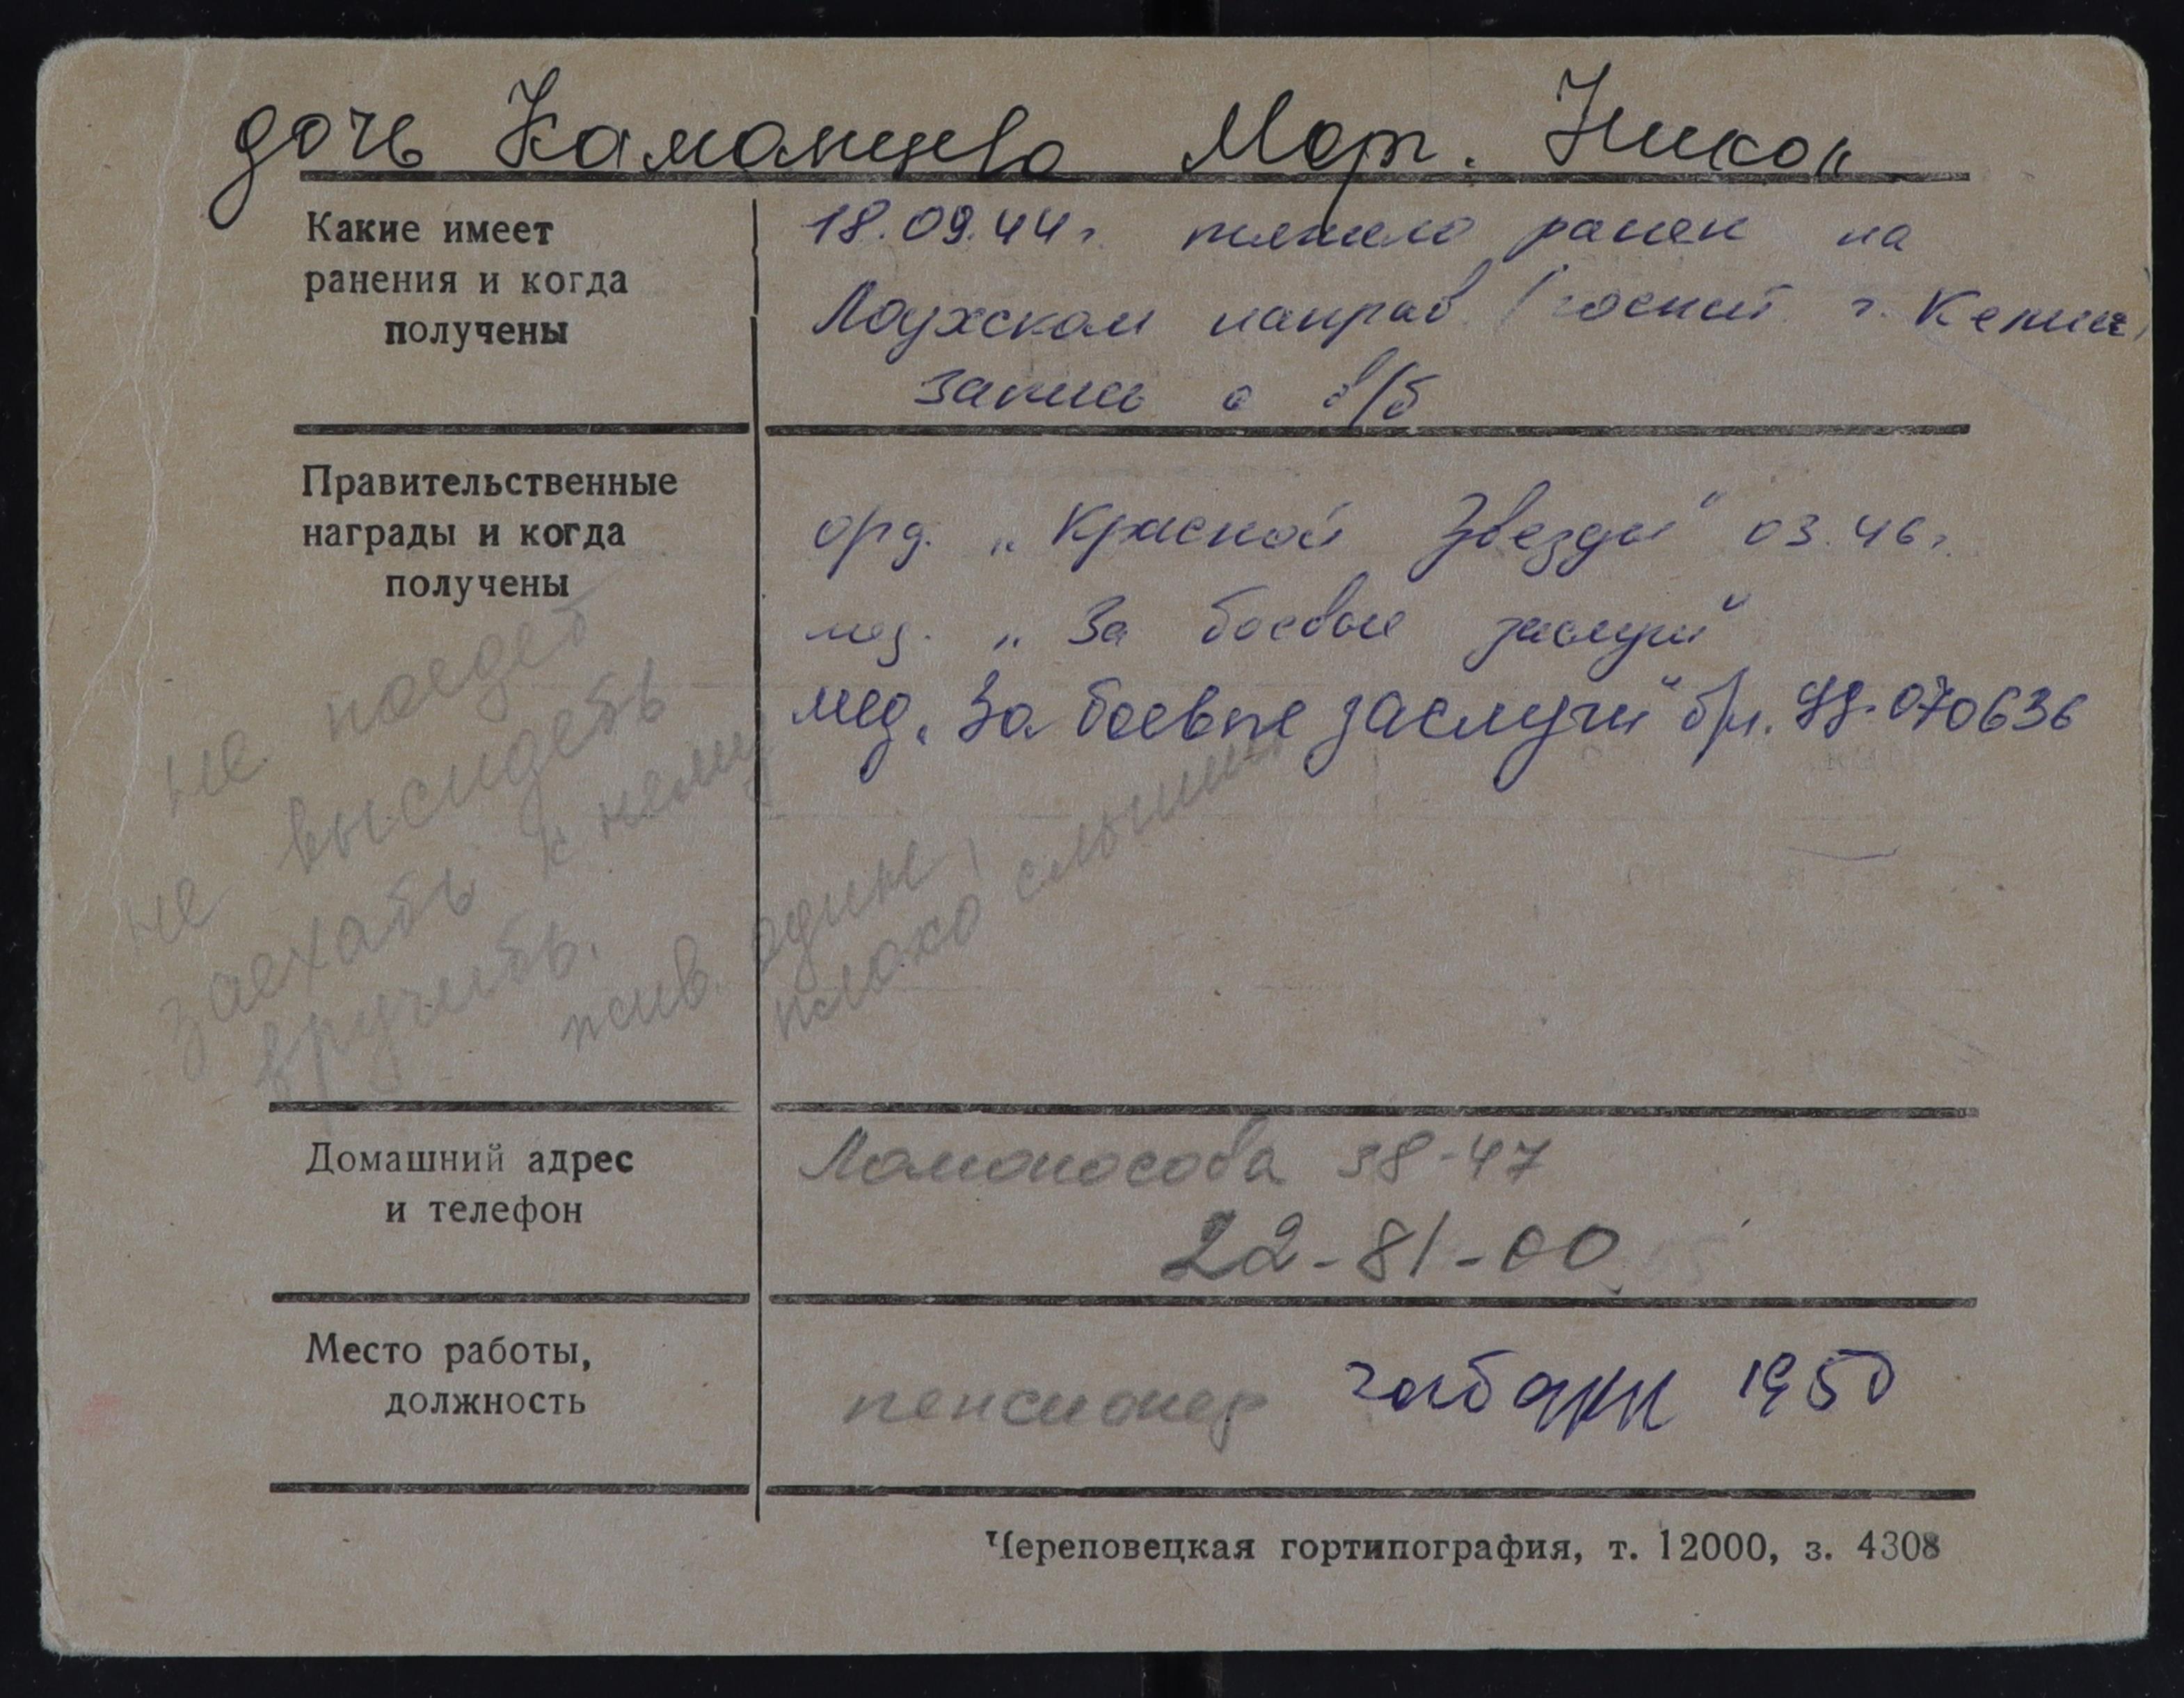 дочь Каманцева Мар. Никол
Какие имеет
ранения и когда
получены
18.09.44 г. тяжело ранен на
Лоухском направ. (госпит. г. Кемии)
запись в в/б
Правительственные
награды и когда
получены
орд. „Красной Звезды" 03.46 г.
мед. „За боевые заслуги"
мед. „За боевые заслуги" б/н. УД-070636
не поедет
не высидеть
заехать к нему
вручить.
жив. один,
плохо слышит
Домашний адрес
и телефон
Ломоносова 38-47
22-81-00
Место работы,
должность
пенсионер 1950
Череповецкая гортипография, т. 12000, з. 4308